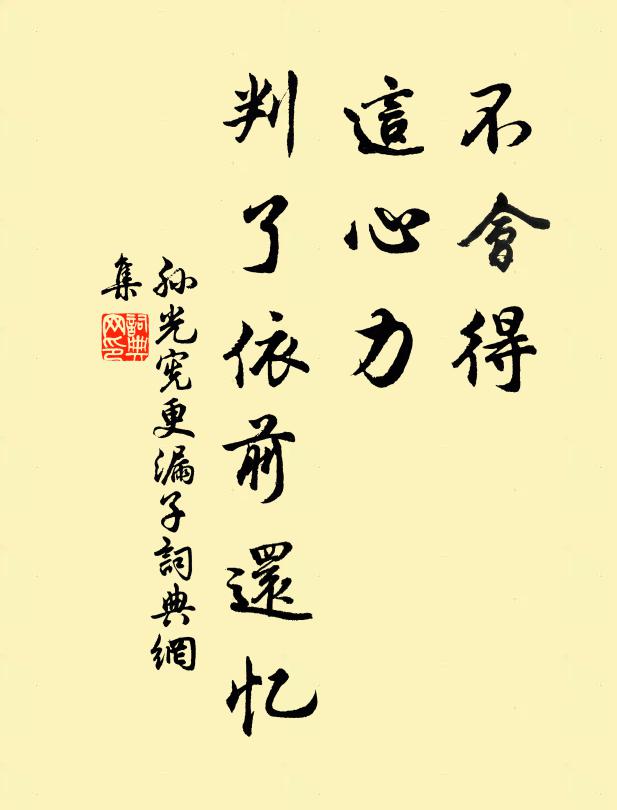 不會得
這心力
判了依前還忆
孫光憲更漏子詞典網
集
詞典網印